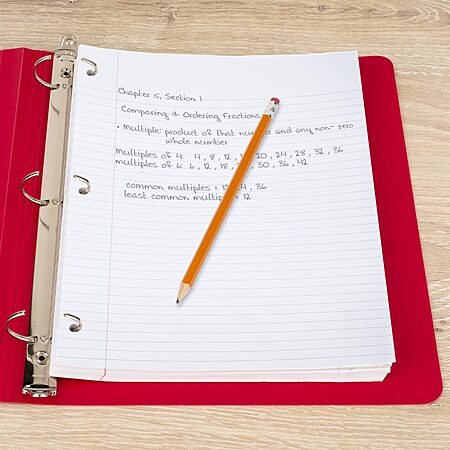 Chapter 5, Section 1
Comparing & Ordering Fractions
• Multiple: product of that number and any non-zero
whole number
Multiples of 4: 4, 8, 12, 20, 24, 28, 32, 36
multiples of 6: 6, 12, 18, 30, 36, 42
common multiples = 24, 36
least common = 12